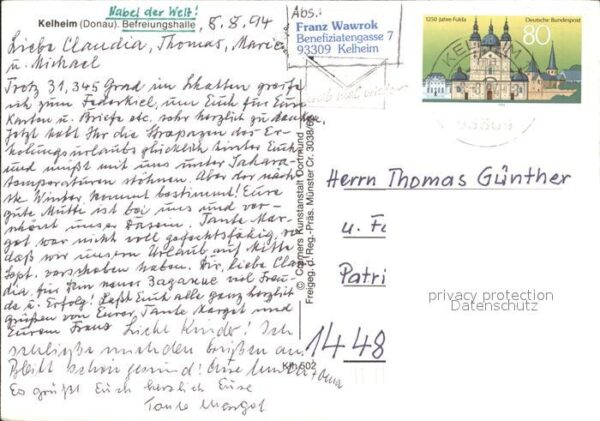 Nabel der Welt!
Kelheim (Donau). Befreiungshalle, 8.8.94
Liebe Claudia, Thomas, Marie
u. Michael
Trotz 31,345 Grad im Schatten greife
ich zum Federkiel, um Euch für Eure
Karten u. Briefe etc. sehr herzlich zu danken.
Jetzt habt Ihr die Strapazen des Er-
holungsurlaubs glücklich hinter Euch
und müßt mit uns unter Sahara-
temperaturen stöhnen. Aber der näch-
ste Winter kommt bestimmt! Eure
gute Mutti ist bei uns und ver-
schönt unser Dasein. Tante Mar-
got war nicht voll
daß wir unseren Urlaub auf Mitte
Sept. verschoben haben. Dir, liebe Clau-
dia, für Dein neues viel Freu-
de u. Erfolg! Laßt Euch alle ganz herzlich
grüßen von Eurer Tante Margot und
Eurem Franz Liebe Kinder! Ich
schließe mich den Grüßen an.
Bleibt schön gesund! Eure Oma
Es grüßt Euch herzlich Eure
Tante Margot
Abs.:
Franz Wawrok
Benefiziatengasse 7
93309 Kelheim
1250 Jahre Fulda
Deutsche Bundespost
80
KELHEIM
© Cramers Kunstanstalt Dortmund
Freigeg. d. Reg.-Präs. Münster Cr. 3038/68
Herrn Thomas Günther
u. Fa
Patri
1448
privacy protection
Datenschutz
Klh 502